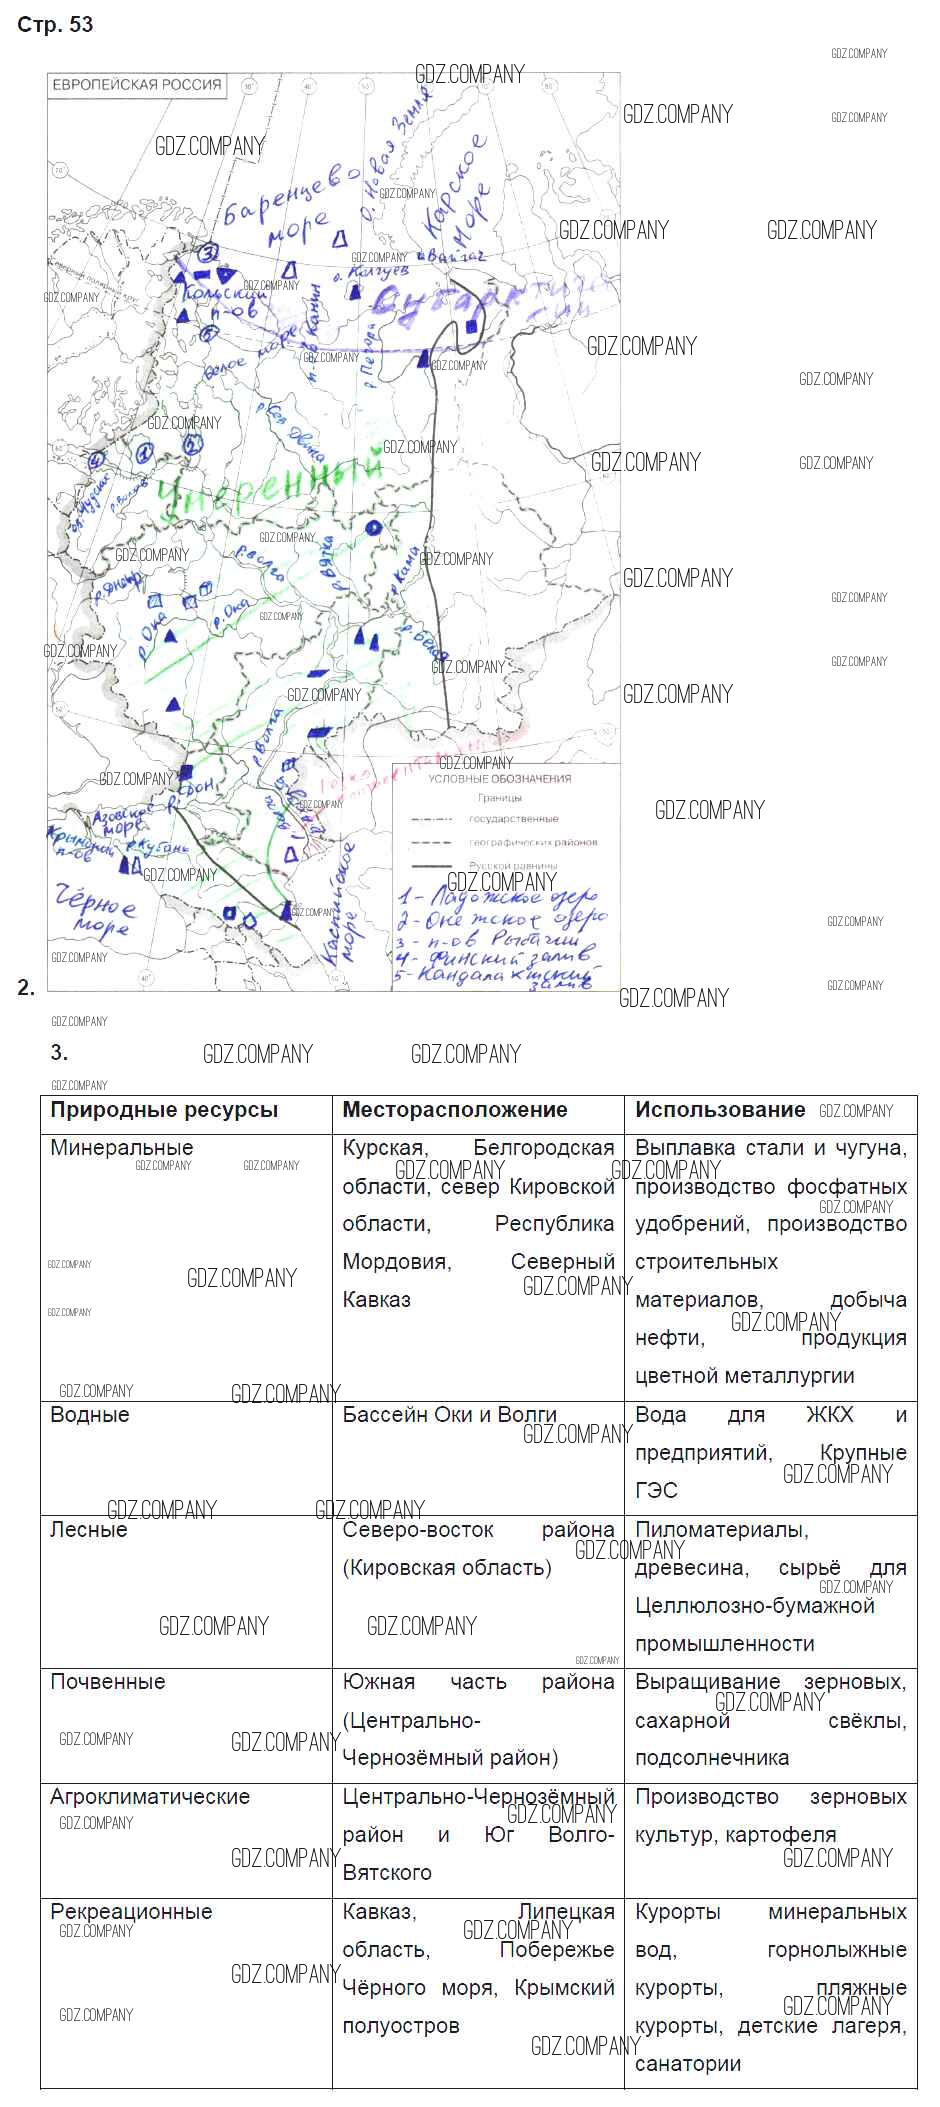 Стр. 53
ЕВРОПЕЙСКАЯ РОССИЯ
GDZ.COMPANY
о. Новая Земля
Баренцево
море
Карское
море
о. Вайгач
о. Колгуев
3
Кольский
п-ов
п-ов Канин
Субарктический
5
Белое море
р. Печора
р. Сев. Двина
4
1
2
Умеренный
оз. Чудское
р. Волхов
р. Днепр
р. Волга
р. Вятка
р. Кама
р. Ока
р. Ока
р. Белая
р. Волга
р. Дон
Азовское
море
Крымский
п-ов
р. Кубань
Чёрное
море
Каспийское
море
УСЛОВНЫЕ ОБОЗНАЧЕНИЯ
Границы
государственные
географических районов
Русской равнины
1 - Ладожское озеро
2 - Онежское озеро
3 - п-ов Рыбачий
4 - Финский залив
5 - Кандалакшский
залив
2.
3.
Природные ресурсы Месторасположение Использование
Минеральные Курская, Белгородская Выплавка стали и чугуна,
области, север Кировской производство фосфатных
области, Республика удобрений, производство
Мордовия, Северный строительных
Кавказ материалов, добыча
нефти, продукция
цветной металлургии
Водные Бассейн Оки и Волги Вода для ЖКХ и
предприятий, Крупные
ГЭС
Лесные Северо-восток района Пиломатериалы,
(Кировская область) древесина, сырьё для
Целлюлозно-бумажной
промышленности
Почвенные Южная часть района Выращивание зерновых,
(Центрально- сахарной свёклы,
Чернозёмный район) подсолнечника
Агроклиматические Центрально-Чернозёмный Производство зерновых
район и Юг Волго- культур, картофеля
Вятского
Рекреационные Кавказ, Липецкая Курорты минеральных
область, Побережье вод, горнолыжные
Чёрного моря, Крымский курорты, пляжные
полуостров курорты, детские лагеря,
санатории